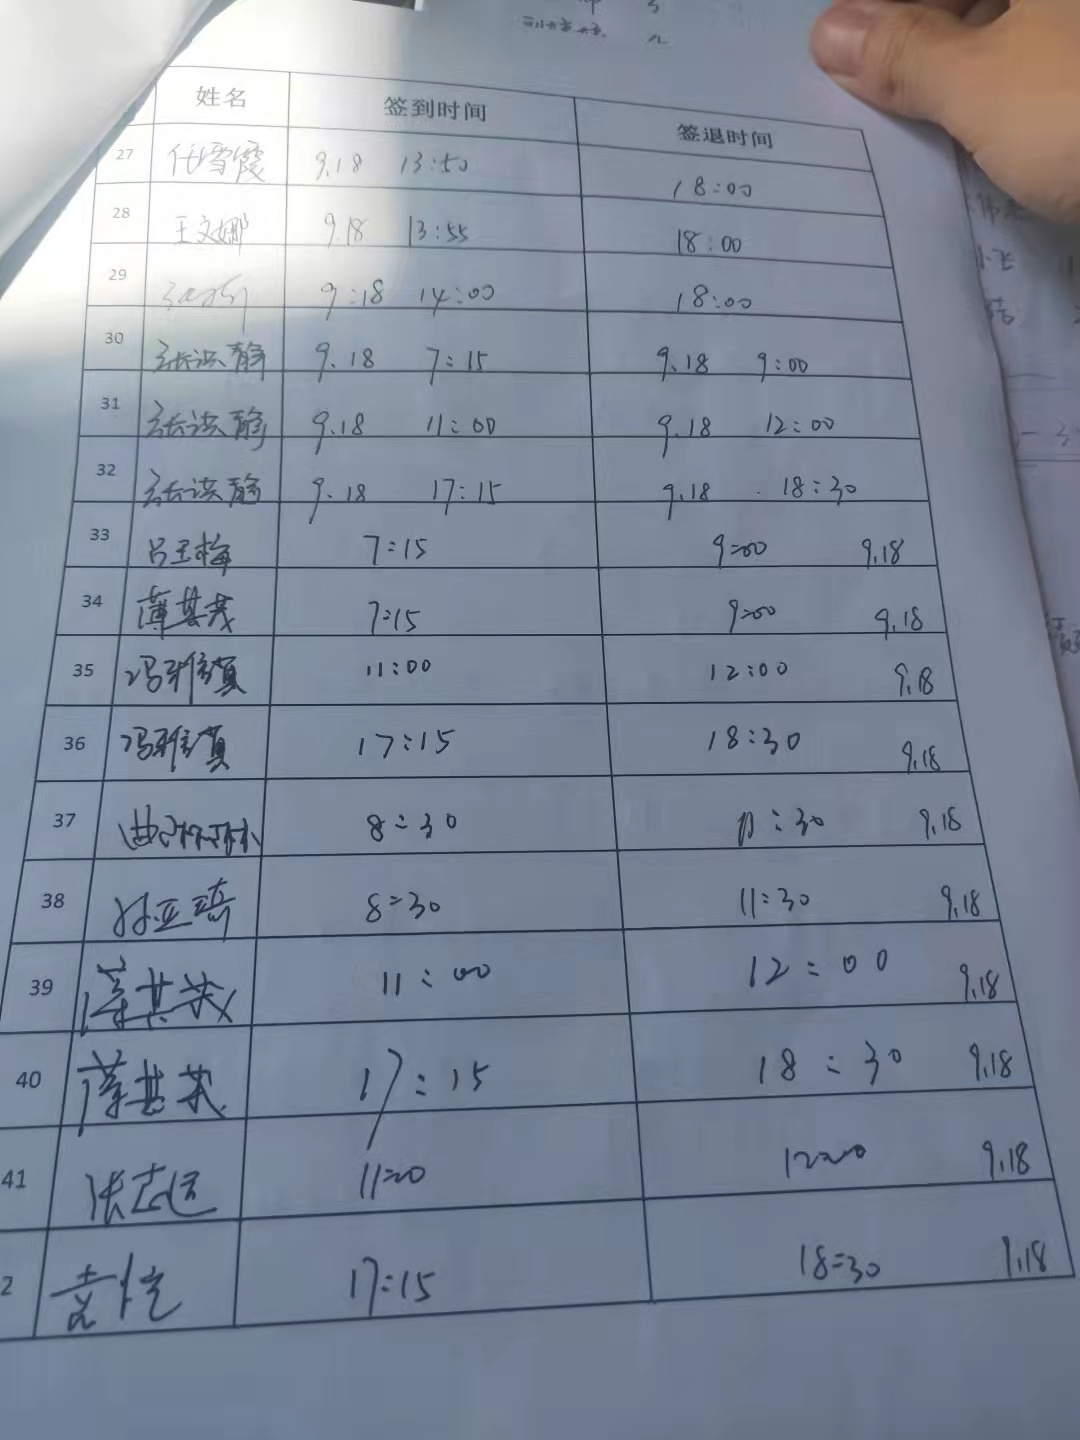 姓名 签到时间 签退时间
27 任雪霞 9.18 13:50 18:00
28 王文娜 9.18 13:55 18:00
29 9:18 14:00 18:00
30 张洪静 9.18 7:15 9.18 9:00
31 张洪静 9.18 11:00 9.18 12:00
32 张洪静 9.18 17:15 9.18 18:30
33 吕玉梅 7:15 9:00 9.18
34 薄其茂 7:15 9:00 9.18
35 冯雅真 11:00 12:00 9.18
36 冯雅真 17:15 18:30 9.18
37 8:30 11:30 9.18
38 孙亚琦 8:30 11:30 9.18
39 11:00 12:00 9.18
40 17:15 18:30 9.18
41 张志远 11:00 12:00 9.18
2 袁恺 17:15 18:30 9.18